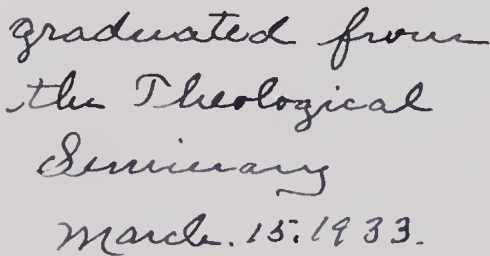 graduated from
the Theological
Seminary
March. 15. 1933.